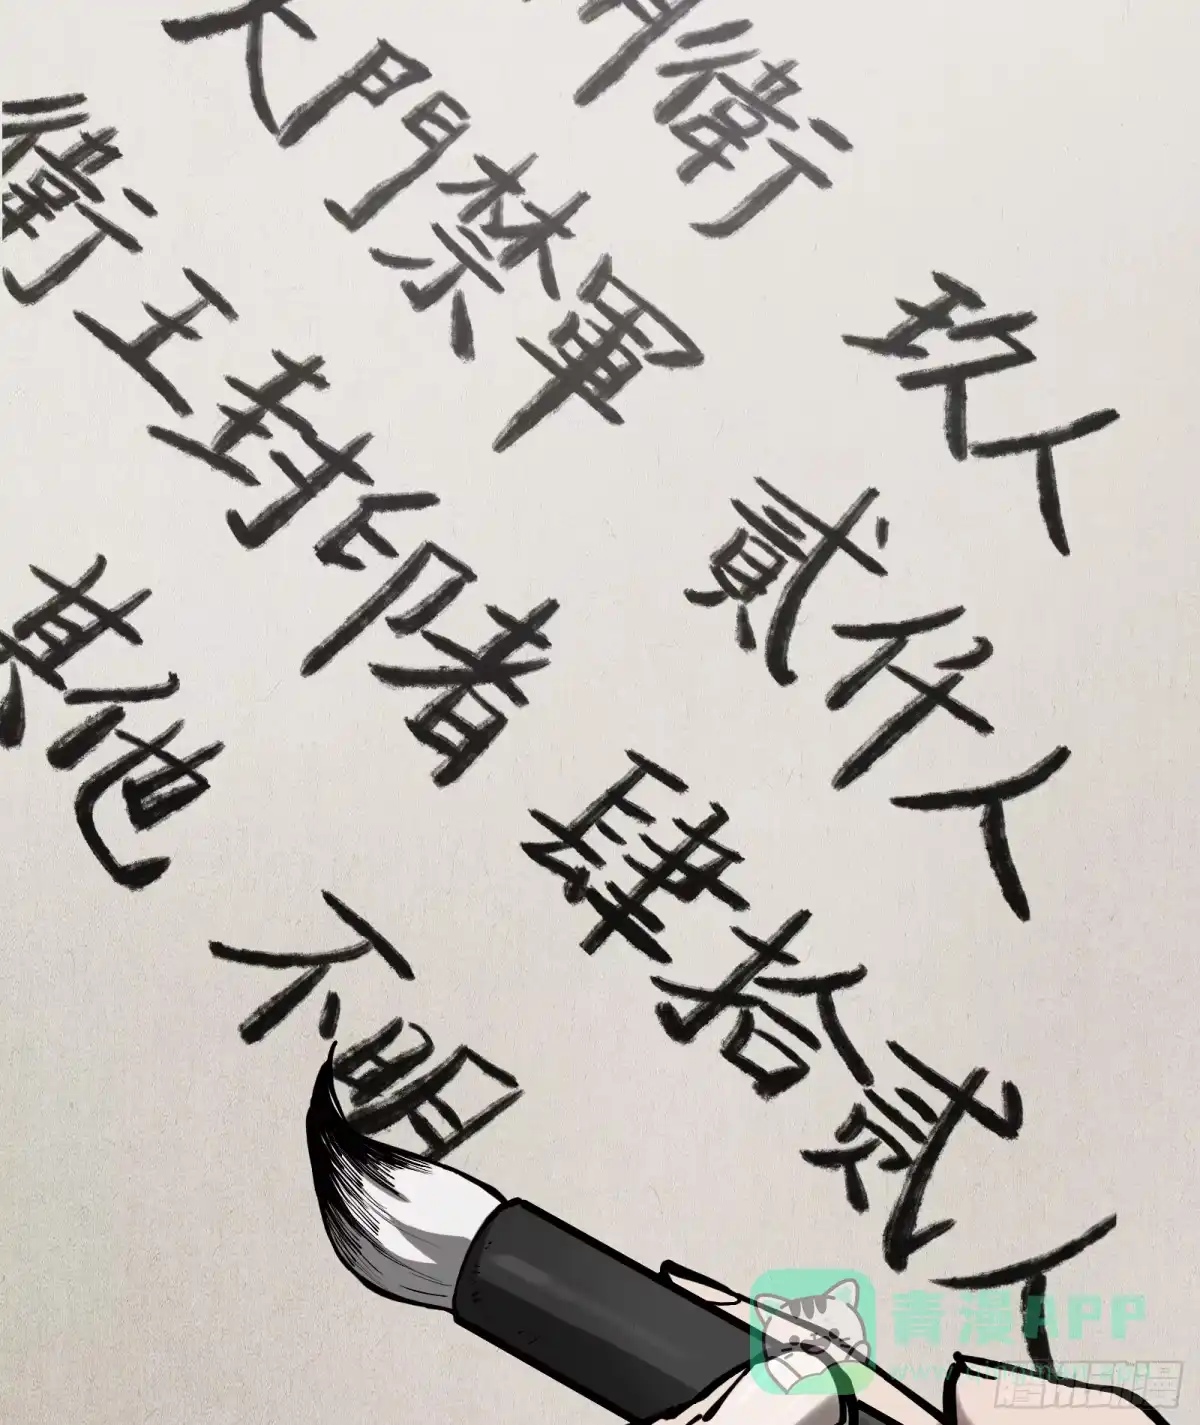 衛 玖人
門禁軍 貳仟人
衛王封印者 肆拾贰人
其他 不明
青漫APP
腾讯动漫